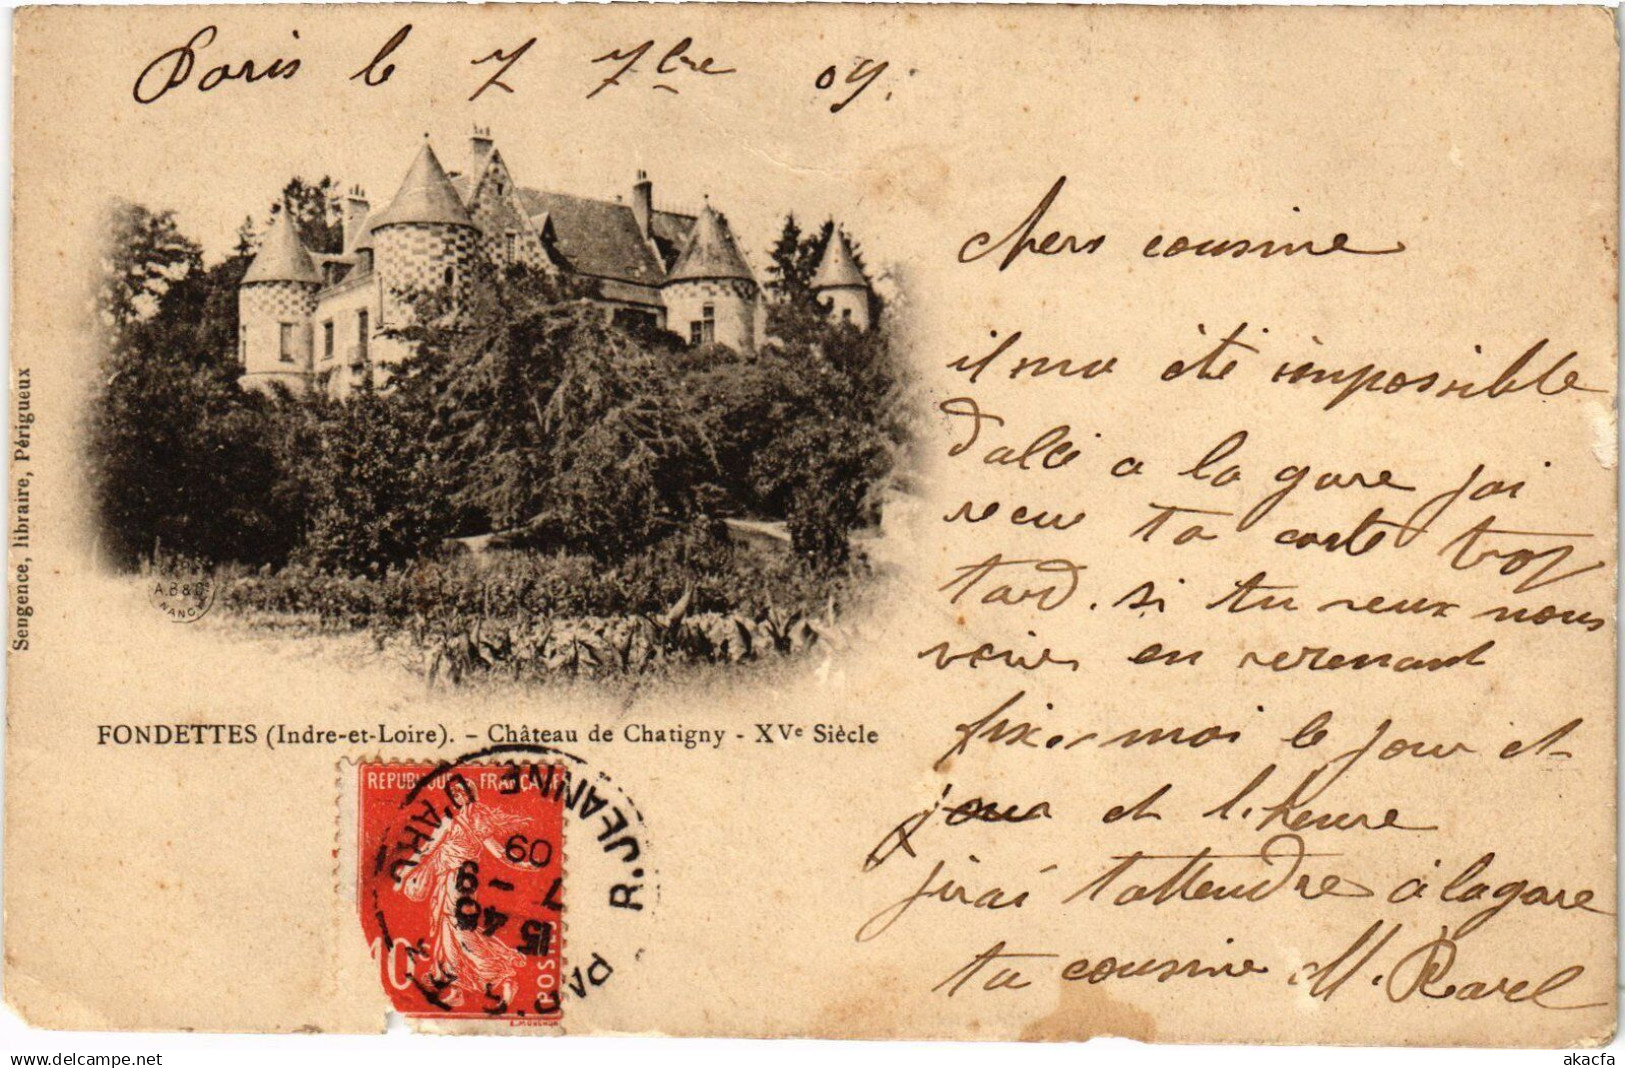 Paris le 7 7bre 09.
Sengence, libraire, Périgueux
A.B & Cie
NANCY
FONDETTES (Indre-et-Loire). - Château de Chatigny - XVe Siècle
chers cousine
il ma été impossible
dallé a la gare jai
recue ta carte trop
tard. si tu veux nous
venir en revenant
fixer moi le jour et
et l'heure
jirai tattendre à la gare
ta cousine M. Ravel
REPUBLIQUE FRANÇAISE
10c
POSTES
E. MOUCHON
PARIS
R. JEANNE D'ARC
15 40
7 - 9
09
akacfa